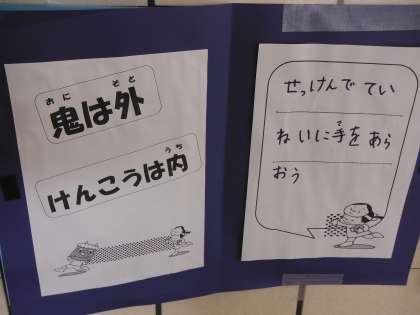 おに そと
鬼は外
うち
けんこうは内
せっけんでてい
て
ねいに手をあら
おう